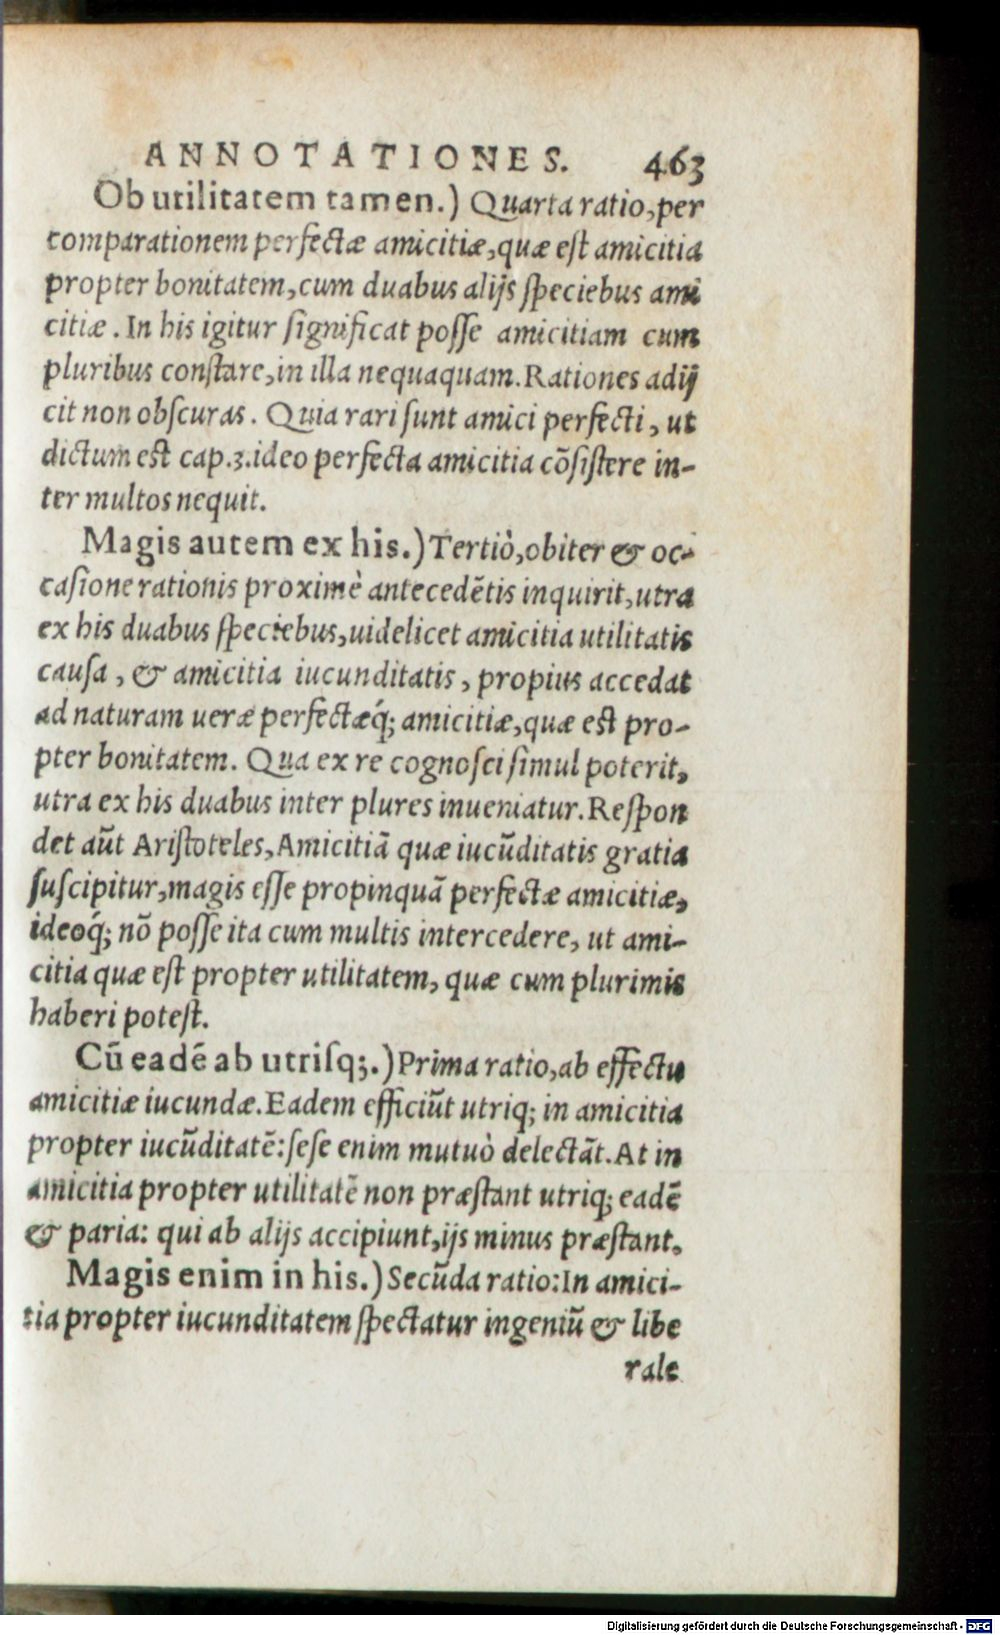 ANNOTATIONES. 463
Ob utilitatem tamen.) Quarta ratio, per
comparationem perfectæ amicitiæ, quæ est amicitia
propter bonitatem, cum duabus alijs speciebus ami
citiæ. In his igitur significat posse amicitiam cum
pluribus constare, in illa nequaquam. Rationes adij
cit non obscuras. Quia rari sunt amici perfecti, ut
dictum est cap.3. ideo perfecta amicitia cõsistere in-
ter multos nequit.
Magis autem ex his.) Tertiò, obiter & oc-
casione rationis proximè antecedẽtis inquirit, utra
ex his duabus speciebus, uidelicet amicitia utilitatis
causa, & amicitia iucunditatis, propius accedat
ad naturam ueræ perfectæq́; amicitiæ, quæ est pro-
pter bonitatem. Qua ex re cognosci simul poterit,
utra ex his duabus inter plures inueniatur. Respon
det aũt Aristoteles, Amicitiã quæ iucũditatis gratia
suscipitur, magis esse propinquã perfectæ amicitiæ,
ideoq́; nõ posse ita cum multis intercedere, ut ami-
citia quæ est propter utilitatem, quæ cum plurimis
haberi potest.
Cũ eadẽ ab utrisq;.) Prima ratio, ab effectu
amicitiæ iucundæ. Eadem efficiũt utriq; in amicitia
propter iucũditatẽ: sese enim mutuò delectãt. At in
amicitia propter utilitatẽ non præstant utriq; eadẽ
& paria: qui ab alijs accipiunt, ijs minus præstant.
Magis enim in his.) Secũda ratio: In amici-
tia propter iucunditatem spectatur ingeniũ & libe
rale
Digitalisierung gefördert durch die Deutsche Forschungsgemeinschaft - DFG